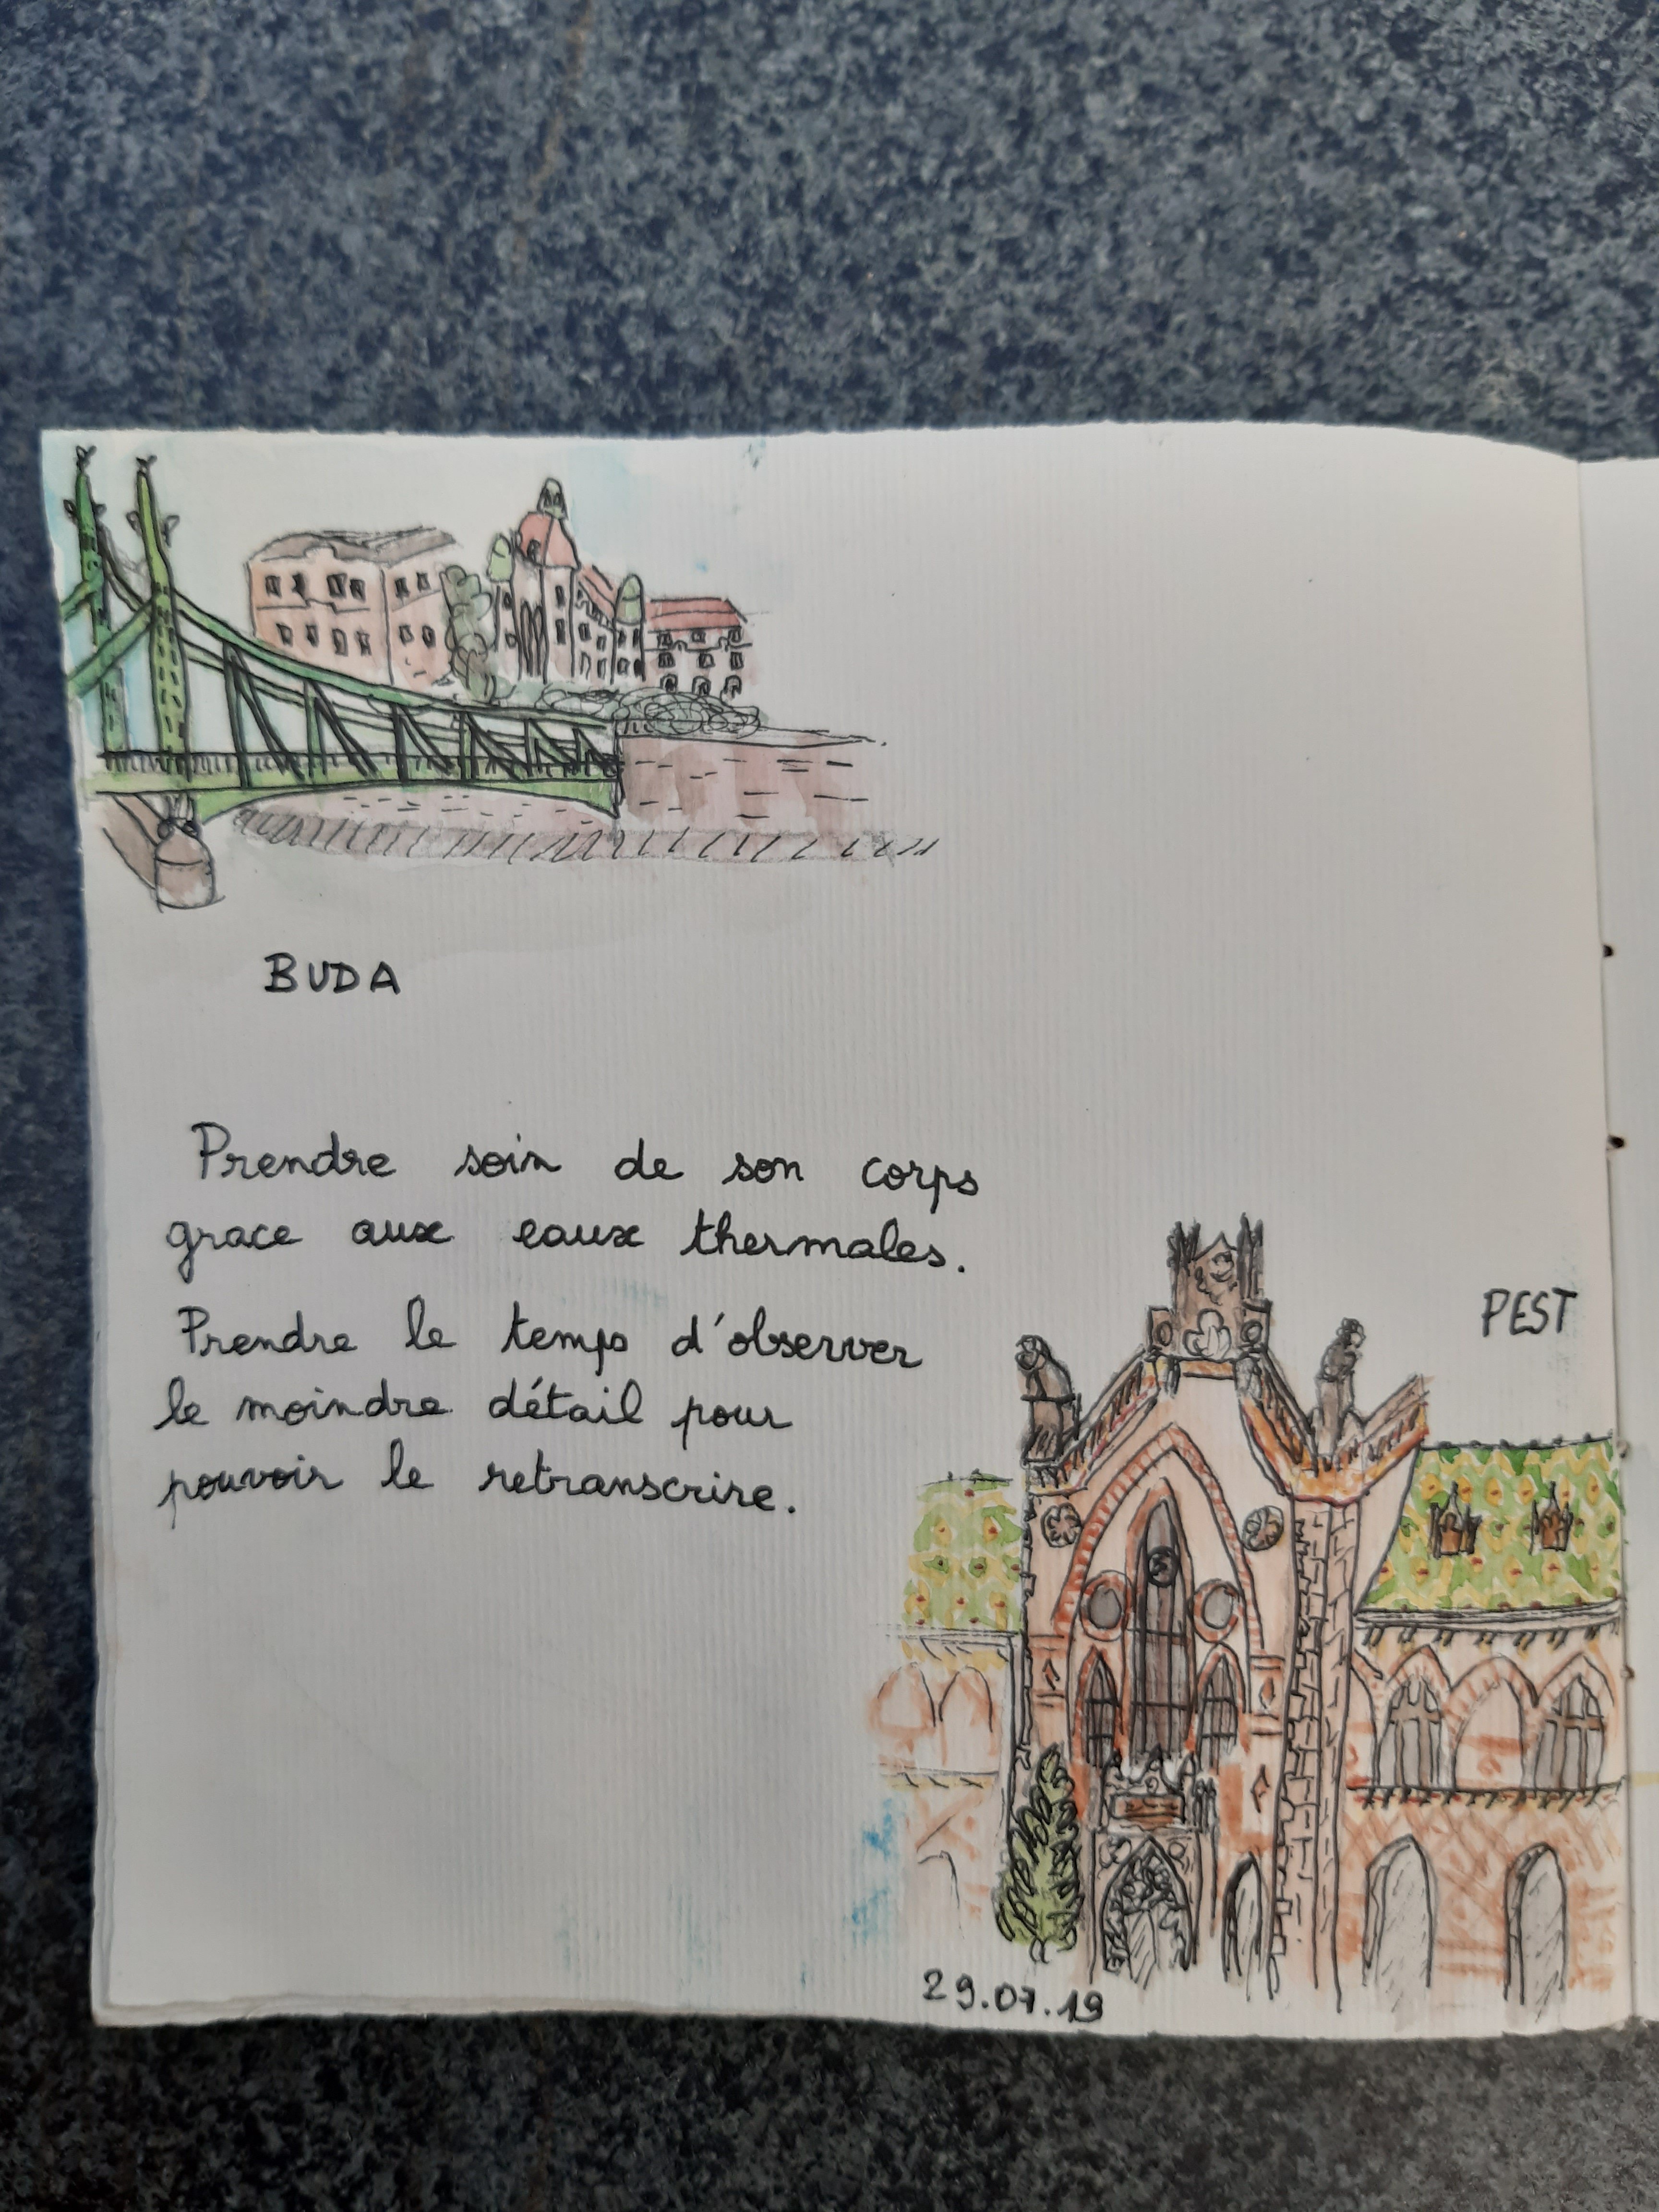 BUDA
Prendre soin de son corps
grace aux eaux thermales.
Prendre le temps d'observer
le moindre détail pour
pouvoir le retranscrire.
PEST
29.07.19